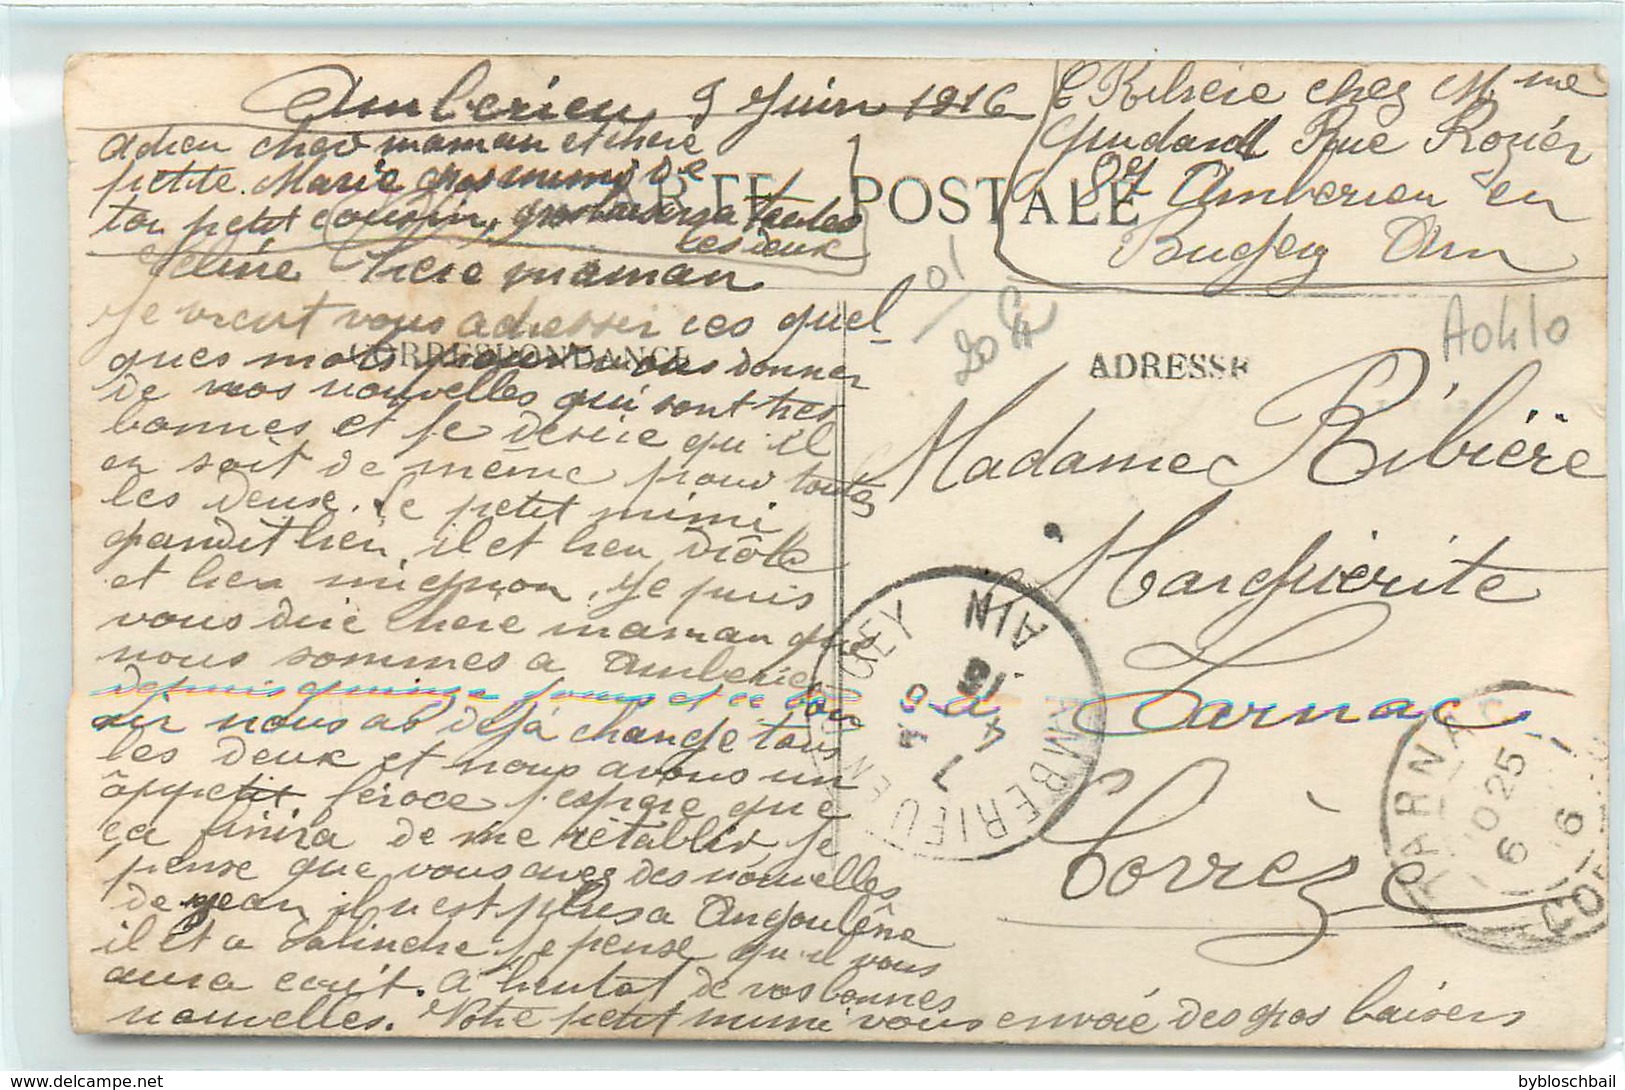 Amberieu 5 Juin 1916
adieu cher maman et chere
petite Marie gros mimi de
ton petit cousin, gros baisers a toutes
les deux
CARTE POSTALE
Ribière chez Mme
Gendard Rue Rozier
87 Amberieu en
Bugey Ain
chere maman
Je vient vous adresser ces quel-
ques mots pour vous donner
de nos nouvelles qui sont tres
bonnes et je desire qu'il
en soit de même pour toutes
les deux. Le petit mimi
grandit bien, il et bien drôle
et bien mignon, Je puis
vous dire chere maman que
nous sommes a Amberieu
depuis quinze jours et ce
air nous as dejà change tous
les deux et nous avons un
appetit feroce j'espere que
ça finira de me rétablir Je
pense que vous avez des nouvelles
de Jean, il n'est plus a Angoulême
il et a Je pense qu'il vous
aura ecrit. A bientot de vos bonnes
nouvelles. Votre petit mimi vous envoie des gros baisers
CORRESPONDANCE
ADRESSE
20
A0410
Madame Ribière
Marguerite
a Tarnac
Corrèze
AMBERIEU EN BUGEY AIN
TARNAC
6 - 6
COR
bybloschbail